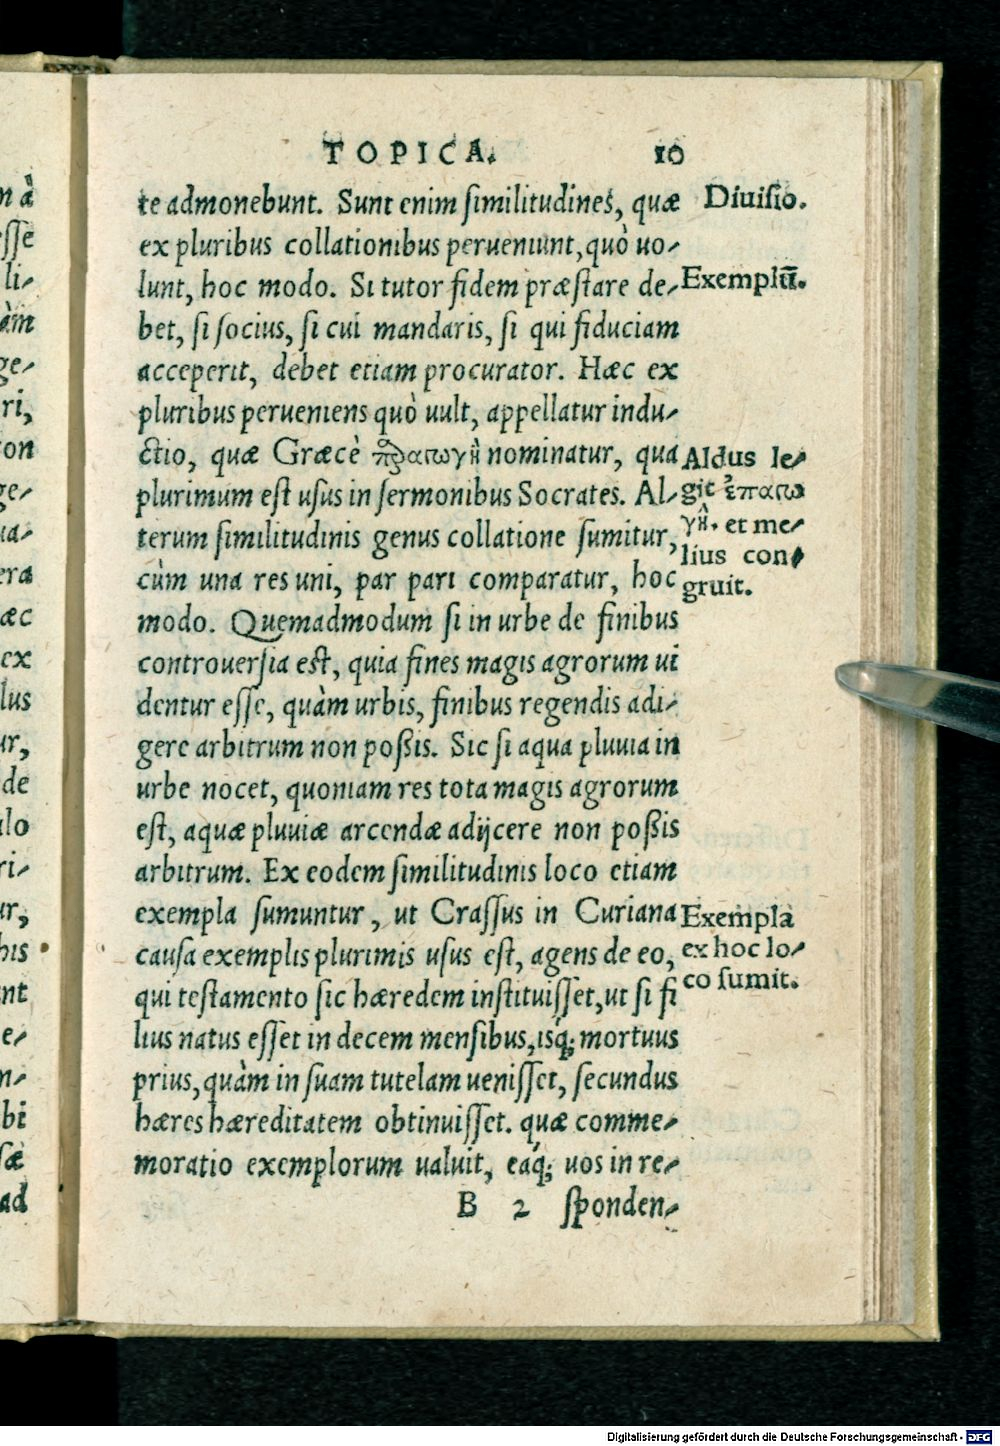 TOPICA. 10
te admonebunt. Sunt enim similitudines, quæ
ex pluribus collationibus perueniunt, quò uo-
lunt, hoc modo. Si tutor fidem præstare de-
bet, si socius, si cui mandaris, si qui fiduciam
acceperit, debet etiam procurator. Hæc ex
pluribus perueniens quò uult, appellatur indu-
ctio, quæ Græcè nominatur, qua
plurimum est usus in sermonibus Socrates. Al-
terum similitudinis genus collatione sumitur,
cùm una res uni, par pari comparatur, hoc
modo. Quemadmodum si in urbe de finibus
controuersia est, quia fines magis agrorum ui
dentur esse, quàm urbis, finibus regendis adi-
gere arbitrum non poßis. Sic si aqua pluuia in
urbe nocet, quoniam res tota magis agrorum
est, aquæ pluuiæ arcendæ adijcere non poßis
arbitrum. Ex eodem similitudinis loco etiam
exempla sumuntur, ut Crassus in Curiana
causa exemplis plurimis usus est, agens de eo,
qui testamento sic hæredem instituisset, ut si fi
lius natus esset in decem mensibus, isq́; mortuus
prius, quàm in suam tutelam uenisset, secundus
hæres hæreditatem obtinuisset. quæ comme-
moratio exemplorum ualuit, eaq́; uos in re-
B 2 sponden-
Diuisio.
Exemplũ.
Aldus le-
git ἐπαγω
γή. et me-
lius con-
gruit.
Exempla
ex hoc lo-
co sumit.
n à
esse
li-
àm
ge-
ri,
on
ge-
ua-
era
æc
ex
lus
ur,
de
ulo
ri-
ur,
bis
nt
e-
n-
bi
sæ
ad
Digitalisierung gefördert durch die Deutsche Forschungsgemeinschaft - DFG